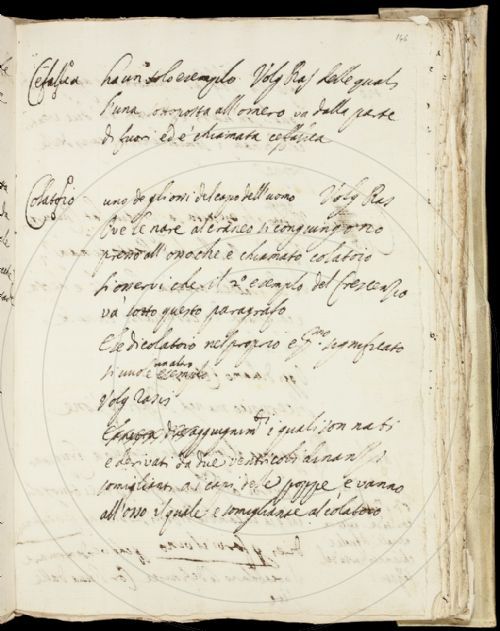 146
Cefalica ha un solo esempio Volg Ras delle quali
l'una sottoposta all'omero va dalla parte
di fuori ed è chiamata cefalica
Colatorio uno degl'ossi del capo dell'uomo Volg Ras
Ove le nare al craneo si congiungono
presso all'osso che è chiamato colatorio
si osservi che il 2º esempio del Crescenzo
va sotto questo paragrafo
E se di colatorio nel proprio e significato
si vuole un altro esempio
Volg Rasis
i quali son nati
e derivati da due ventricoli dinanzi
somiglianti ai capi delle poppe e vanno
all'osso il quale è somigliante al colatorio